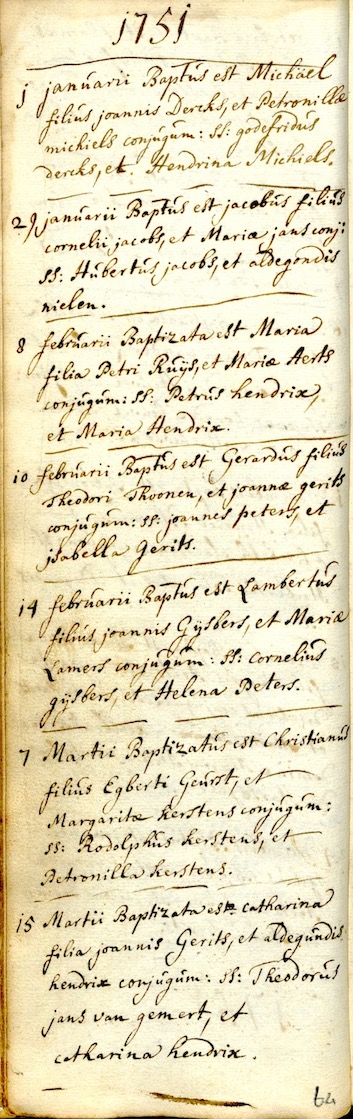 1751
1 januarii Baptus est Michäel
filius joannis Dercks, et Petronillæ
michiels conjugum: ss: godefridus
dercks, et. Hendrina Michiels.
29 januarii Baptus est jacobus filius
cornelii jacobs, et Mariæ jans conj:
ss: Hubertus jacobs, et aldegondis
nielen.
8 februarii Baptizata est Maria
filia Petri Ruijs, et Mariæ Aerts
conjugum: ss: Petrus hendrix,
et Maria Hendrix.
10 februarii Baptus est Gerardus filius
Theodori Thoonen, et joannæ gerits
conjugum: ss: joannes peters, et
jsabella Gerits.
14 februarii Baptus est Lambertus
filius joannis Gijsbers, et Mariæ
Lamers conjugum: ss: cornelius
gijsbers, et Helena Peters.
7 Martii Baptizatus est Christianus
filius Egberti Geurst, et
Margaritæ kerstens conjugum:
ss: Rodolphus kerstens, et
Petronilla kerstens.
15 Martii Baptizata est catharina
filia joannis Gerits, et aldegundis
hendrix conjugum: ss: Theodorus
jans van gemert, et
catharina hendrix.